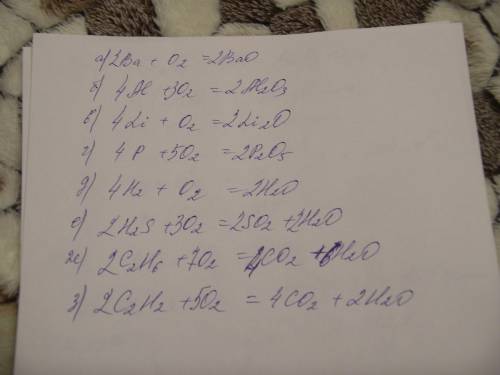 а) 2Ba + O2 = 2BaO
б) 4Al + 3O2 = 2Al2O3
в) 4Li + O2 = 2Li2O
г) 4P + 5O2 = 2P2O5
д) 4H2 + O2 = 2H2O
е) 2H2S + 3O2 = 2SO2 + 2H2O
ж) 2C2H6 + 7O2 = 4CO2 + 6H2O
з) 2C2H2 + 5O2 = 4CO2 + 2H2O